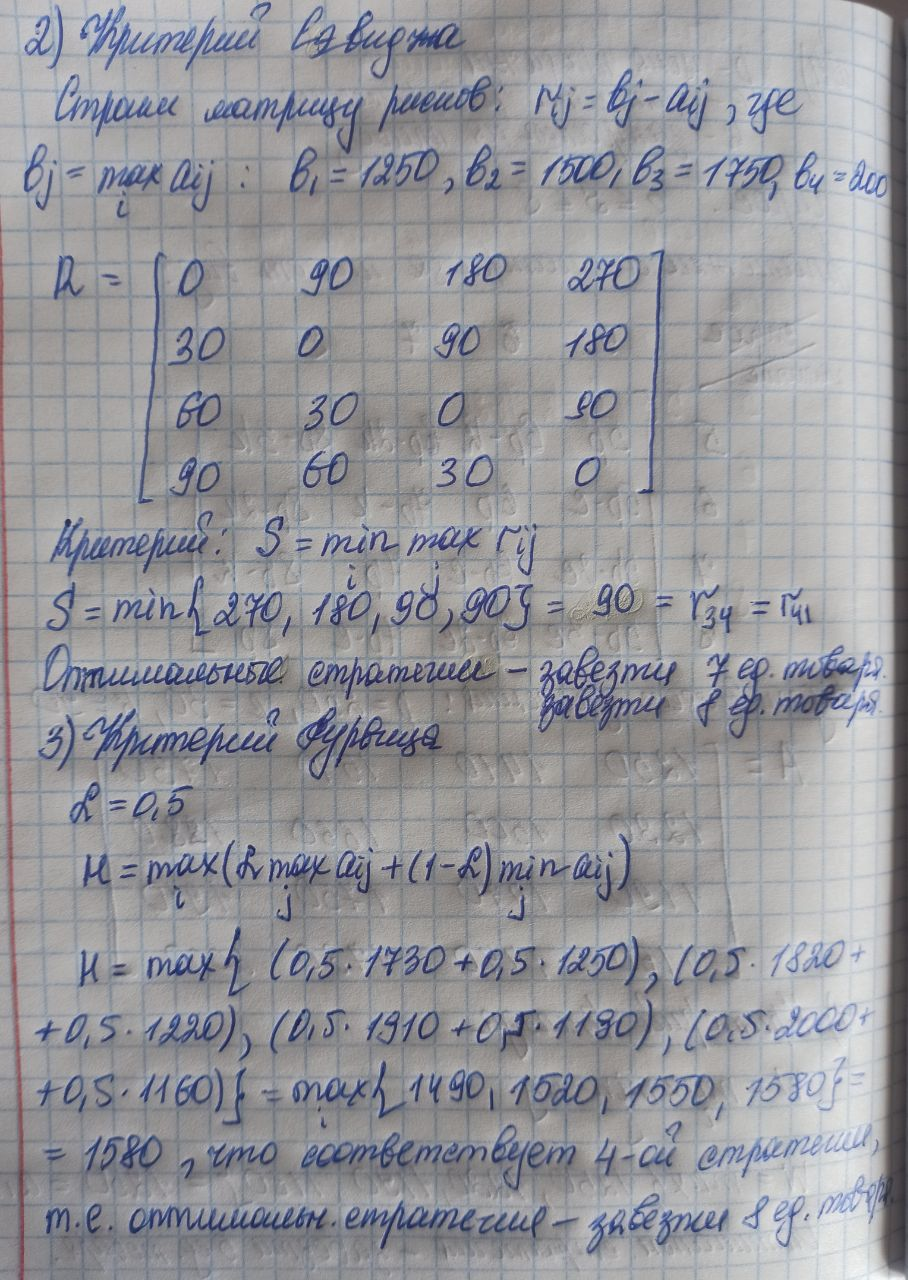 2) Критерий Сэвиджа
Строим матрицу рисков: rij = bj - aij, где
bj = max aij : b1 = 1250, b2 = 1500, b3 = 1750, b4 = 200
i
R = [ 0 90 180 270 ]
30 0 90 180
60 30 0 90
90 60 30 0
Критерий: S = min max rij
i j
S = min{270, 180, 90, 90} = 90 = r34 = r41
Оптимальные стратегии – завезти 7 ед. товара.
завезти 8 ед. товара.
3) Критерий Гурвица
α = 0,5
H = max(α max aij + (1-α) min aij)
i j j
H = max{ (0,5·1730 + 0,5·1250), (0,5·1820 +
+ 0,5·1220), (0,5·1910 + 0,5·1190), (0,5·2000 +
+ 0,5·1160)} = max{1490, 1520, 1550, 1580} =
i
= 1580, что соответствует 4-ой стратегии,
т.е. оптимальн. стратегия – завезти 8 ед. товара